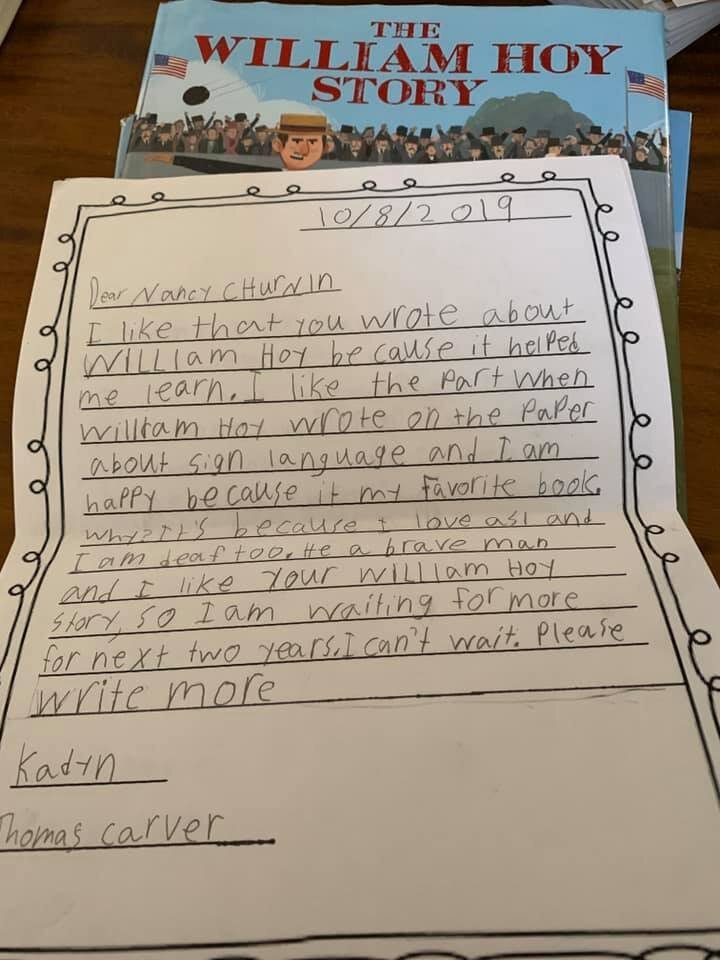 THE
WILLIAM HOY
STORY
10/8/2019
Dear Nancy CHurNin
I like that you wrote about
WILLIam Hoy because it helped
me learn. I like the part when
William Hoy wrote on the paper
about sign language and I am
happy because it my favorite book.
why? It's because I love asl and
I am deaf too. He a brave man
and I like your William Hoy
story, so I am waiting for more
for next two years. I can't wait. Please
write more
Kadyn
Thomas carver